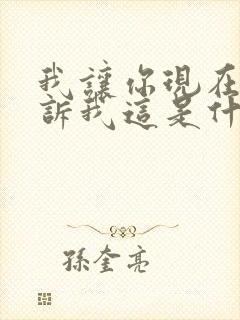 我讓你現在
訴我這是什
孫奎亮